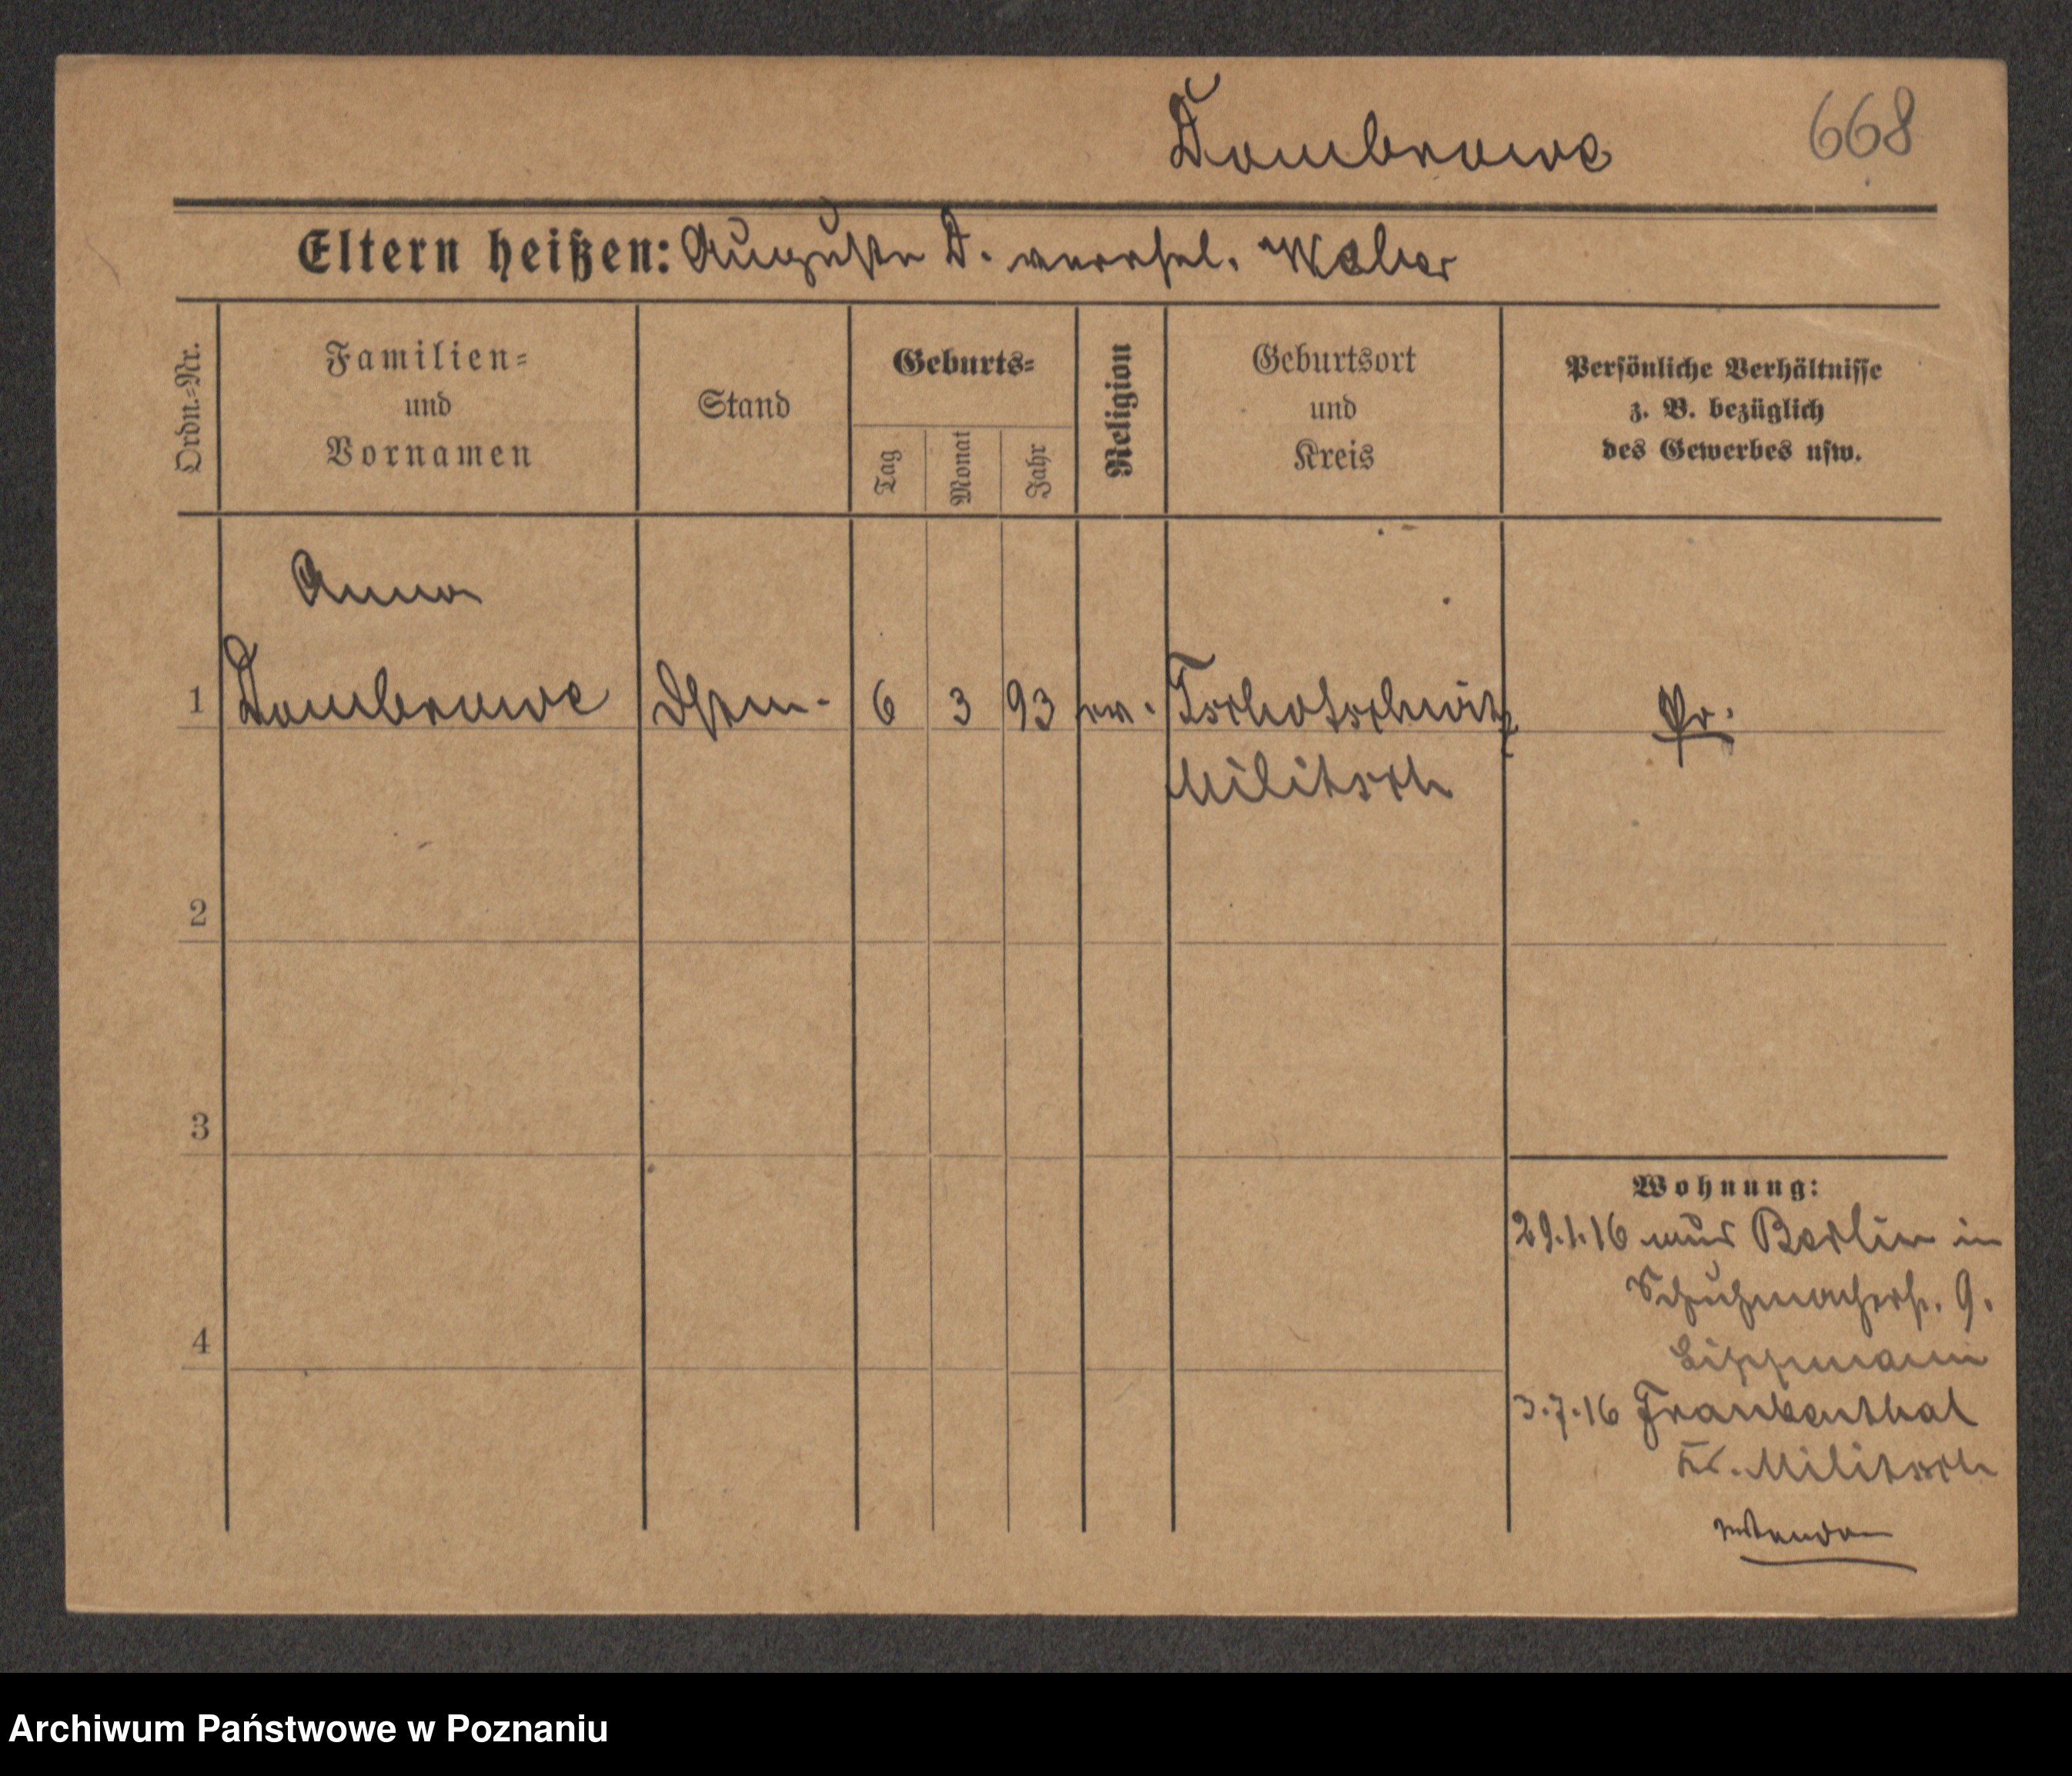 Dombrowe 668
Eltern heißen: Auguste D. verehel. Weber
Ordn.=Nr.
Familien=
und
Vornamen
Stand
Geburts=
Tag
Monat
Jahr
Religion
Geburtsort
und
Kreis
Persönliche Verhältnisse
z. B. bezüglich
des Gewerbes usw.
Anna
1 Dombrowe 6 3 93 ev. Tschotschwitz Pr.
Militsch
2
3
4
Wohnung:
29.1.16 aus Berlin in
Schuhmacherstr. 9.
Lippmann
3.7.16 Frankenthal
Kr. Militsch
Archiwum Państwowe w Poznaniu